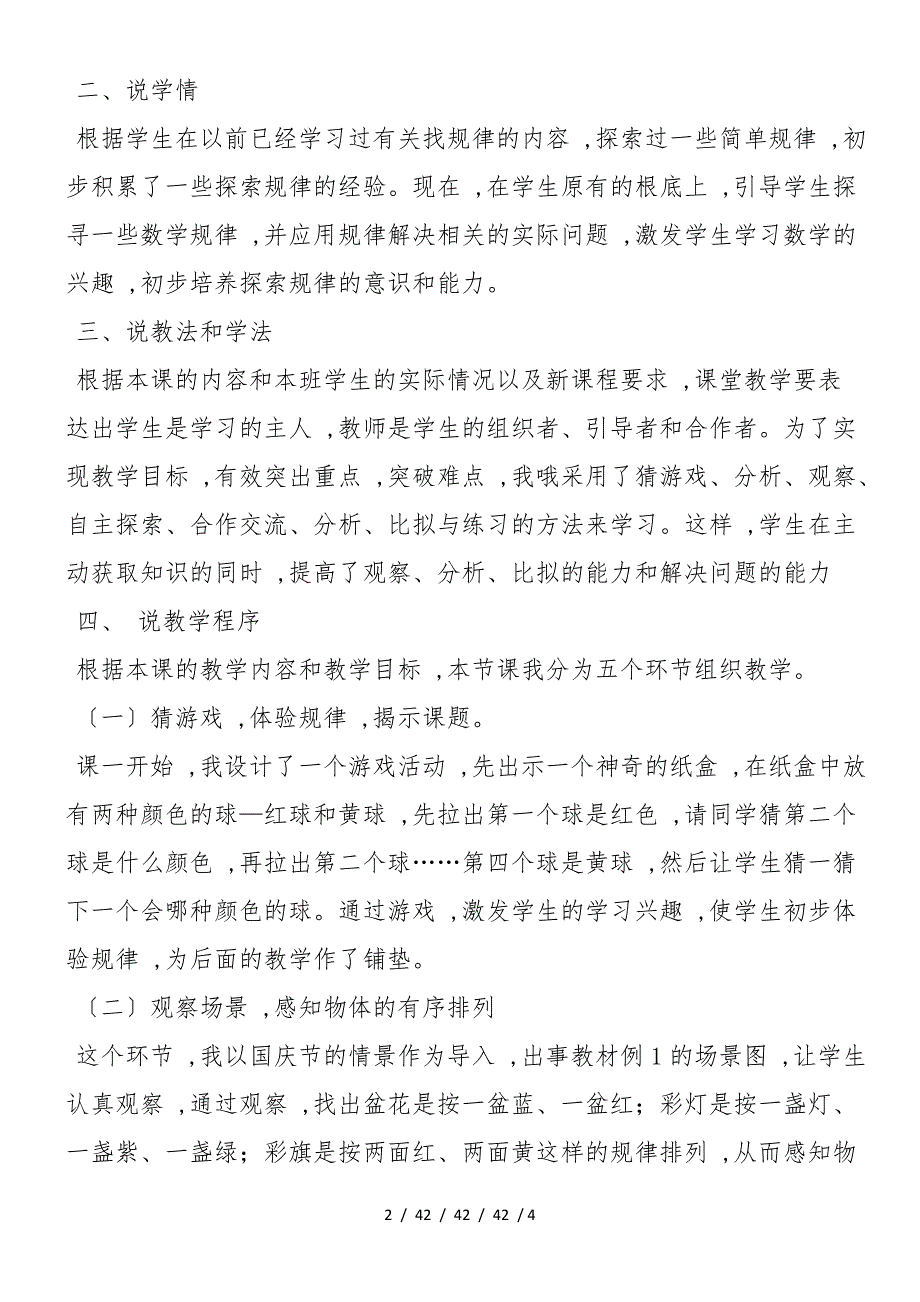 二、说学情
根据学生在以前已经学习过有关找规律的内容 ,探索过一些简单规律 ,初
步积累了一些探索规律的经验。现在 ,在学生原有的根底上 ,引导学生探
寻一些数学规律 ,并应用规律解决相关的实际问题 ,激发学生学习数学的
兴趣 ,初步培养探索规律的意识和能力。
三、说教法和学法
根据本课的内容和本班学生的实际情况以及新课程要求 ,课堂教学要表
达出学生是学习的主人 ,教师是学生的组织者、引导者和合作者。为了实
现教学目标 ,有效突出重点 ,突破难点 ,我哦采用了猜游戏、分析、观察、
自主探索、合作交流、分析、比拟与练习的方法来学习。这样 ,学生在主
动获取知识的同时 ,提高了观察、分析、比拟的能力和解决问题的能力
四、 说教学程序
根据本课的教学内容和教学目标 ,本节课我分为五个环节组织教学。
〔一〕猜游戏 ,体验规律 ,揭示课题。
课一开始 ,我设计了一个游戏活动 ,先出示一个神奇的纸盒 ,在纸盒中放
有两种颜色的球—红球和黄球 ,先拉出第一个球是红色 ,请同学猜第二个
球是什么颜色 ,再拉出第二个球……第四个球是黄球 ,然后让学生猜一猜
下一个会哪种颜色的球。通过游戏 ,激发学生的学习兴趣 ,使学生初步体
验规律 ,为后面的教学作了铺垫。
〔二〕观察场景 ,感知物体的有序排列
这个环节 ,我以国庆节的情景作为导入 ,出事教材例1的场景图 ,让学生
认真观察 ,通过观察 ,找出盆花是按一盆蓝、一盆红；彩灯是按一盏灯、
一盏紫、一盏绿；彩旗是按两面红、两面黄这样的规律排列 ,从而感知物
2 / 42 / 42 / 42 / 4